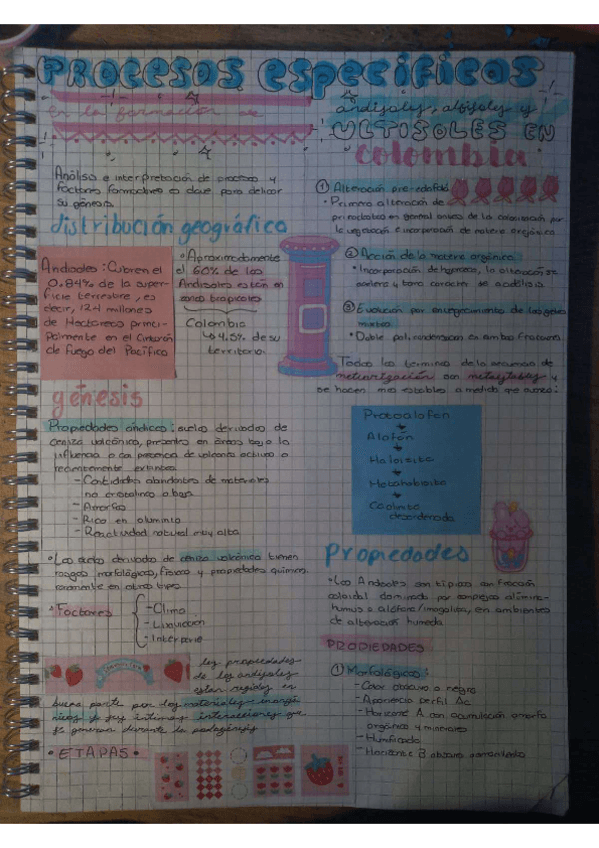 PROCESOS específicos
en la formación de
andisoles, alfisoles y
ULTISOLES EN
colombia
Análisis e interpretación de procesos y
factores formadores es clave para
su génesis.
distribución geográfica
Andisoles: Cubren el
0.84% de la super-
ficie terrestre, es
decir, 124 millones
de Hectáreas princi-
palmente en el Cinturón
de Fuego del Pacífico
• Aproximadamente
el 60% de los
Andisoles están en
zonas tropicales
Colombia
↳ 4.5% de su
territorio
génesis
Propiedades ándicas: suelos derivados de
ceniza volcánica, presentes en áreas bajo la
influencia o ca presencia de volcanes activos o
recientemente extintos
- Cantidades abundantes de materiales
no cristalinos
- Amorfos
- Rico en aluminio
- Reactividad natural muy alta
• Los suelos derivados de ceniza volcánica tienen
rasgos morfológicos, físicos y propiedades químicas
raramente en otros tipos
• Factores
- Clima
- Lixiviación
- Intemperie
las propiedades
de los andisoles
están regidas en
buena parte por los materiales inorgá-
nicos y sus íntimas interacciones que
se generan durante la pedogénesis
• ETAPAS •
① Alteración pre-edafolo
• Primera alteración de
piroclastos en general antes de la colonización por
la vegetación e incorporación de materia orgánica.
② Acción de la materia orgánica
• Incorporación de hojarasca, la alteración se
acelera y toma carácter de acidólisis
③ Evolución por envejecimiento de los geles
mixtos
• Doble policondensación en ambas fracciones
Todos los términos de la secuencia de
meteorización son metaestables y
se hacen más estables a medida que avanza:
Protoalofán
Alofán
Haloisita
Metahaloisita
Caolinita
desordenada
Propiedades
• Los Andisoles son típicos con fracción
coloidal dominada por complejos alumino-
humus o alófana/imogolita, en ambientes
de alteración húmeda
PROPIEDADES
① Morfológicas:
- Color obscuro o negro
- Apariencia perfil Ac
- Horizonte A con acumulación amorfa
orgánica y minerales
- Humificado
- Horizonte B